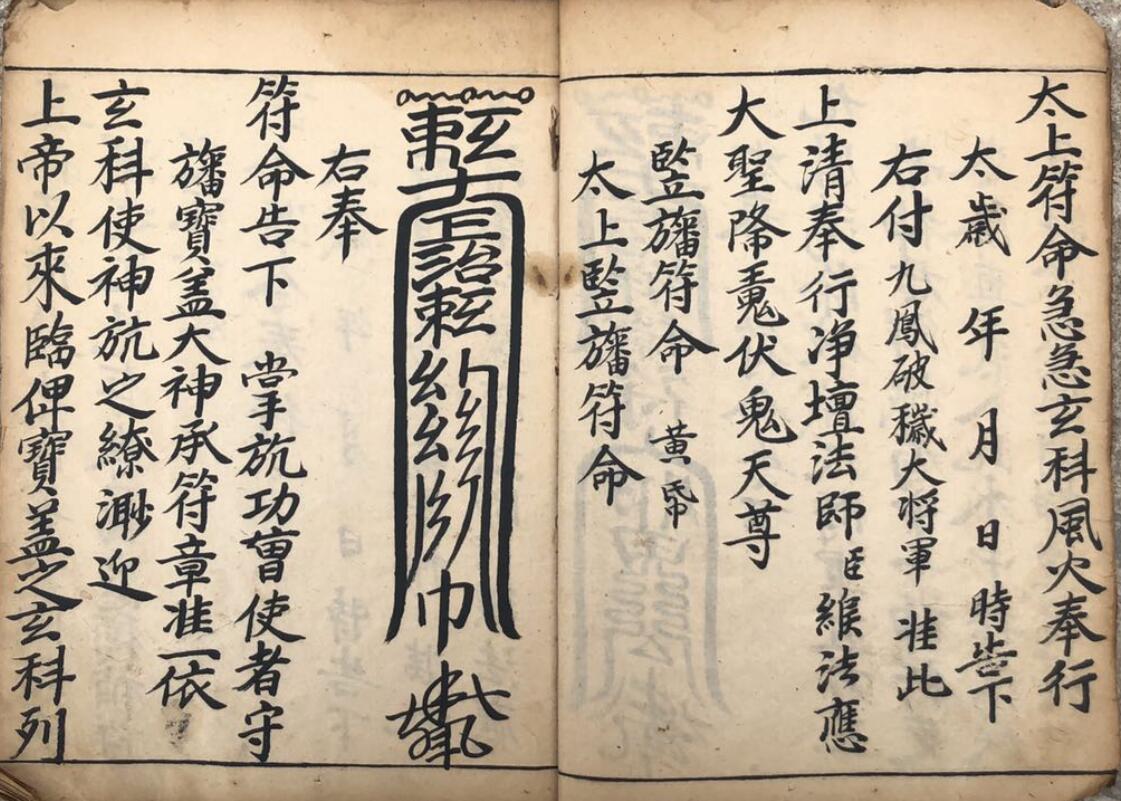 太上符命急急玄科風火奉行
太歲 年 月 日 時告下
右付九鳳破穢大將軍 准此
上清奉行净壇法師臣維法應
大聖降魔伏鬼天尊
監旛符命 黃帋
太上監旛符命
右奉
符命告下 掌旊功曺使者守
旛寳盖大神承符章准一依
玄科使神旊之繚渺迎
上帝以來臨俾寳盖之玄科列